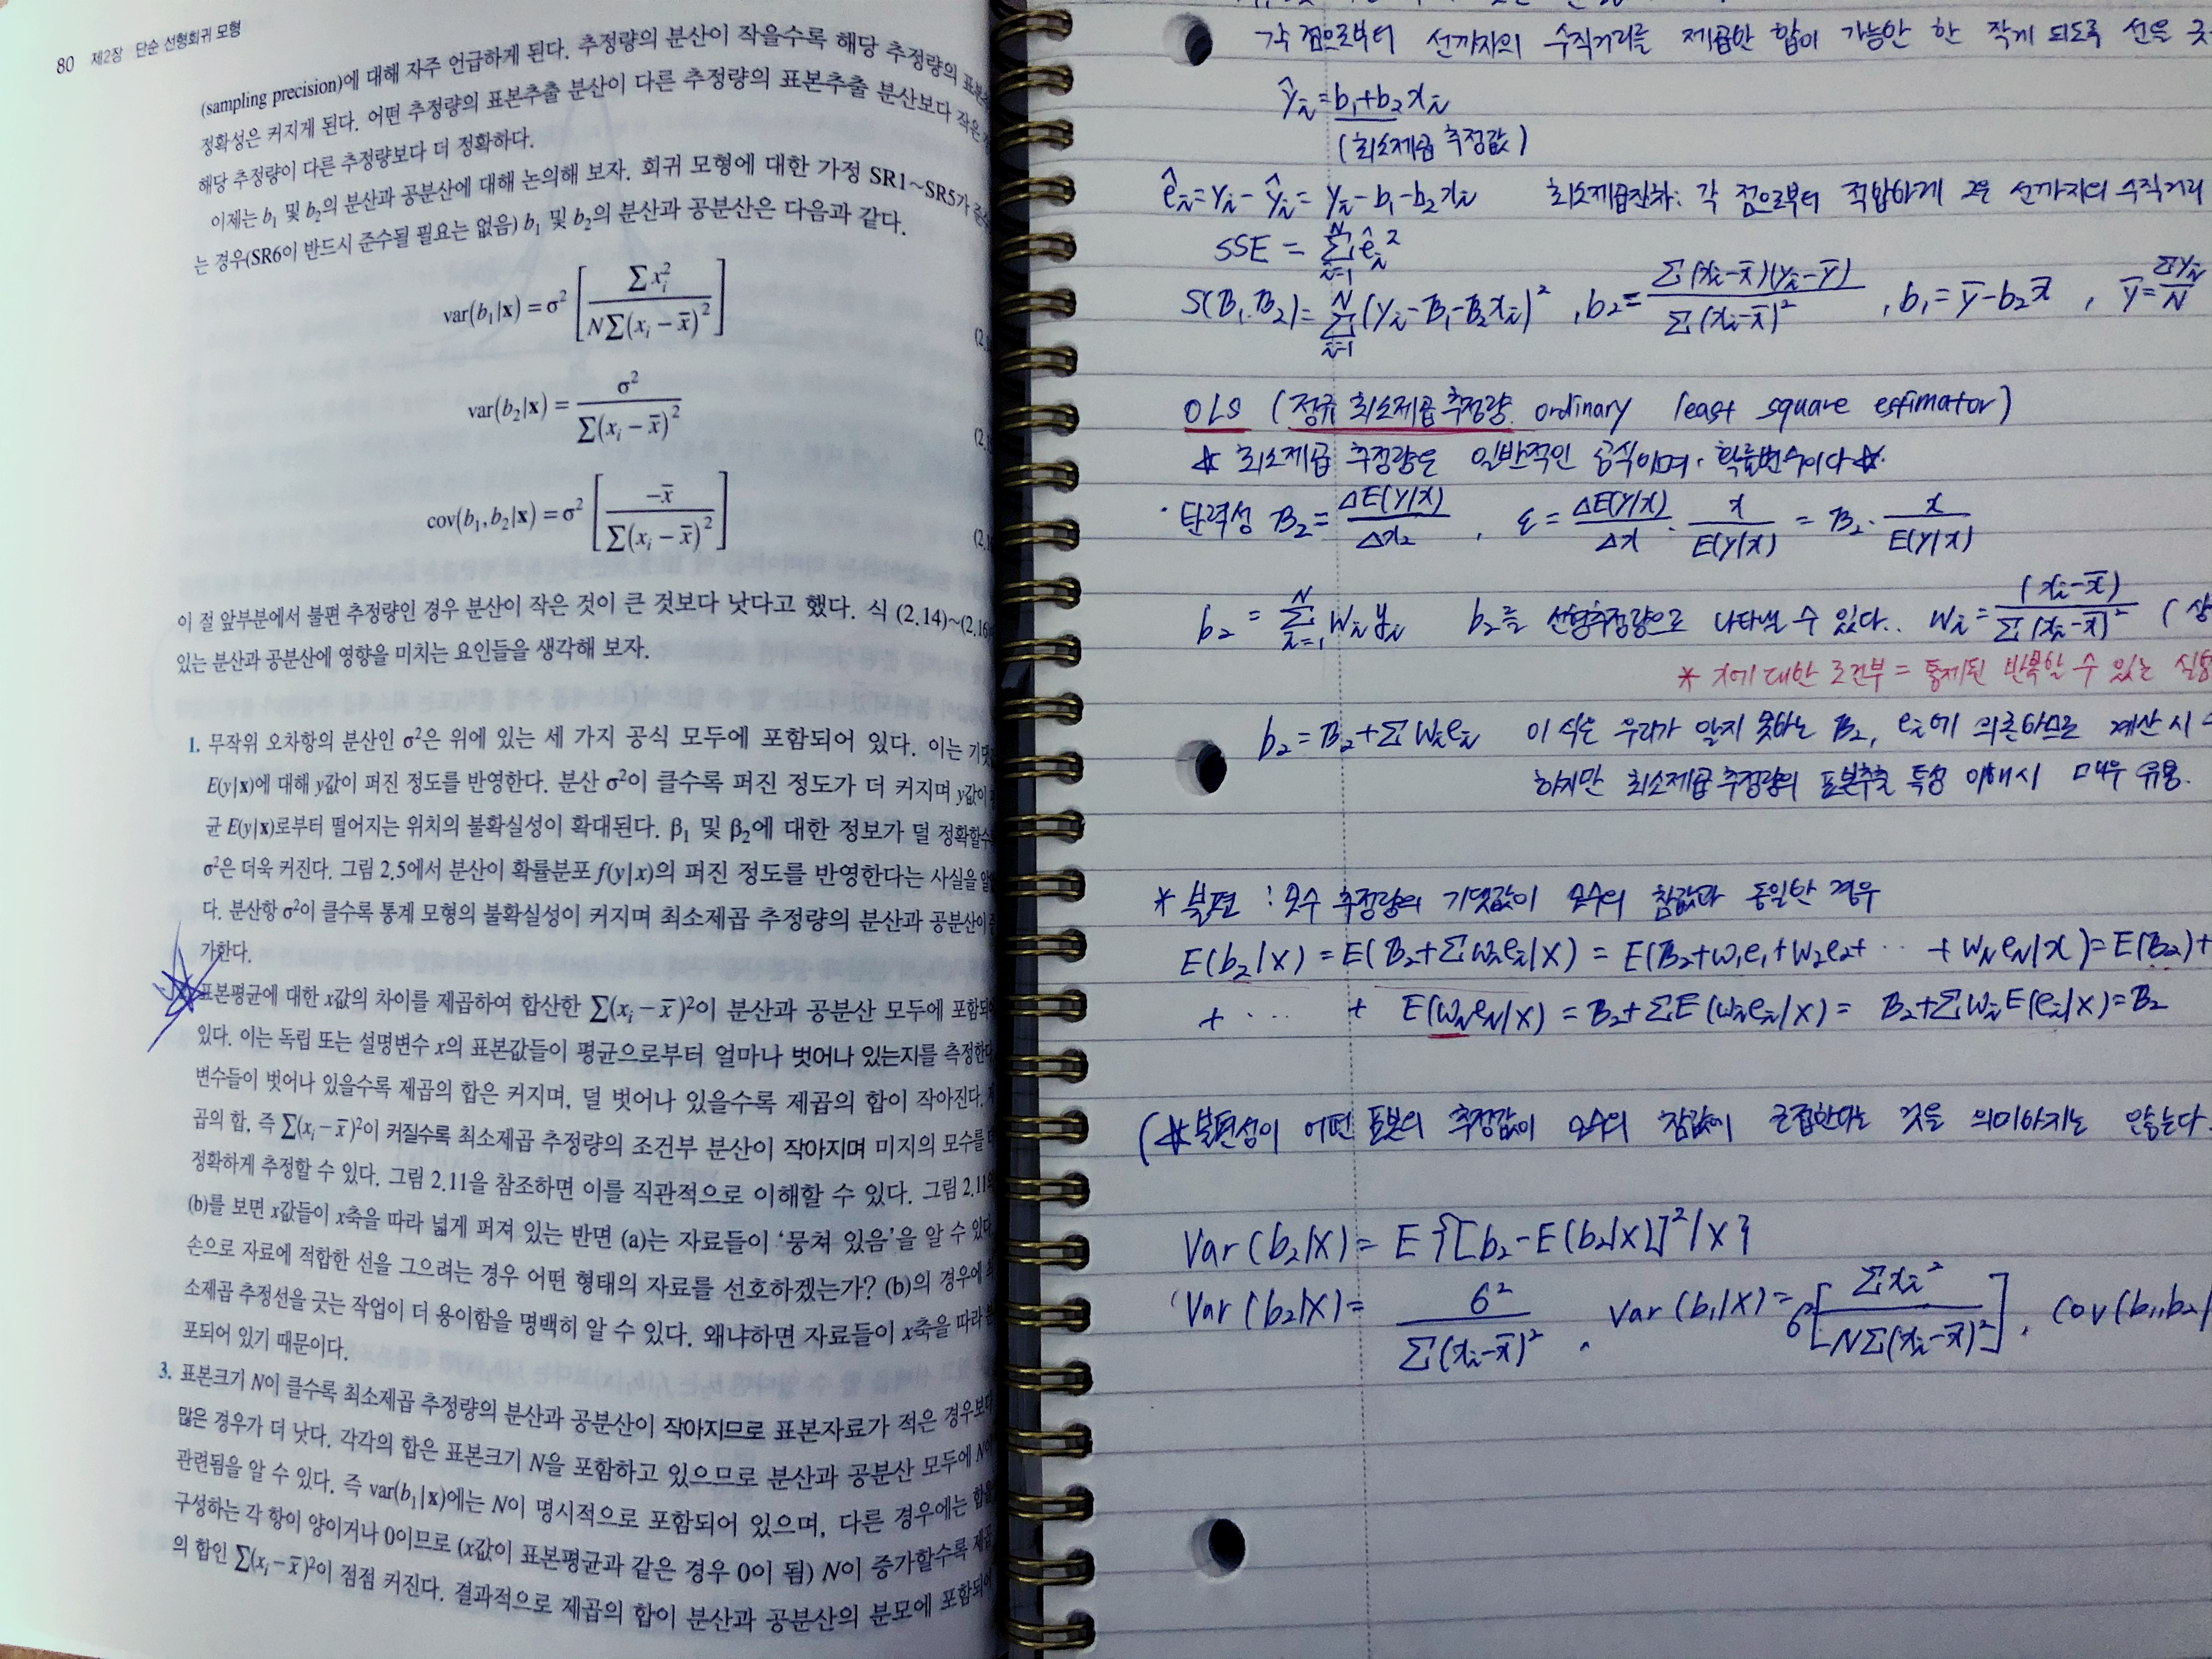 80 제2장 단순 선형회귀 모형
(sampling precision)에 대해 자주 언급하게 된다. 추정량의 분산이 작을수록 해당 추정량의
정확성은 커지게 된다. 어떤 추정량의 표본추출 분산이 다른 추정량의 표본추출 분산보다 작은
해당 추정량이 다른 추정량보다 더 정확하다.
이제는 b₁ 및 b₂의 분산과 공분산에 대해 논의해 보자. 회귀 모형에 대한 가정 SR1~SR5가
는 경우(SR6이 반드시 준수될 필요는 없음) b₁ 및 b₂의 분산과 공분산은 다음과 같다.
var(b₁|x) = σ² [ ∑xᵢ² / N∑(xᵢ − x̄)² ]
var(b₂|x) = σ² / ∑(xᵢ − x̄)²
cov(b₁, b₂|x) = σ² [ −x̄ / ∑(xᵢ − x̄)² ]
이 절 앞부분에서 불편 추정량인 경우 분산이 작은 것이 큰 것보다 낫다고 했다. 식 (2.14)~(2.16)
있는 분산과 공분산에 영향을 미치는 요인들을 생각해 보자.
1. 무작위 오차항의 분산인 σ²은 위에 있는 세 가지 공식 모두에 포함되어 있다. 이는
E(y|x)에 대해 y값이 퍼진 정도를 반영한다. 분산 σ²이 클수록 퍼진 정도가 더 커지며 y값이
균 E(y|x)로부터 떨어지는 위치의 불확실성이 확대된다. β₁ 및 β₂에 대한 정보가 덜 정확할수록
σ²은 더욱 커진다. 그림 2.5에서 분산이 확률분포 f(y|x)의 퍼진 정도를 반영한다는 사실을
다. 분산항 σ²이 클수록 통계 모형의 불확실성이 커지며 최소제곱 추정량의 분산과 공분산이
가한다.
표본평균에 대한 x값의 차이를 제곱하여 합산한 ∑(xᵢ − x̄)²이 분산과 공분산 모두에 포함되어
있다. 이는 독립 또는 설명변수 x의 표본값들이 평균으로부터 얼마나 벗어나 있는지를 측정한다.
변수들이 벗어나 있을수록 제곱의 합은 커지며, 덜 벗어나 있을수록 제곱의 합이 작아진다.
곱의 합, 즉 ∑(xᵢ − x̄)²이 커질수록 최소제곱 추정량의 조건부 분산이 작아지며 미지의 모수를
정확하게 추정할 수 있다. 그림 2.11을 참조하면 이를 직관적으로 이해할 수 있다. 그림 2.11의
(b)를 보면 x값들이 x축을 따라 넓게 퍼져 있는 반면 (a)는 자료들이 ‘뭉쳐 있음’을 알 수 있다.
손으로 자료에 적합한 선을 그으려는 경우 어떤 형태의 자료를 선호하겠는가? (b)의 경우에
소제곱 추정선을 긋는 작업이 더 용이함을 명백히 알 수 있다. 왜냐하면 자료들이 x축을 따라
포되어 있기 때문이다.
3. 표본크기 N이 클수록 최소제곱 추정량의 분산과 공분산이 작아지므로 표본자료가 적은 경우보다
많은 경우가 더 낫다. 각각의 합은 표본크기 N을 포함하고 있으므로 분산과 공분산 모두에 N이
관련됨을 알 수 있다. 즉 var(b₁|x)에는 N이 명시적으로 포함되어 있으며, 다른 경우에는 합을
구성하는 각 항이 양이거나 0이므로 (x값이 표본평균과 같은 경우 0이 됨) N이 증가할수록 제곱
의 합인 ∑(xᵢ − x̄)²이 점점 커진다. 결과적으로 제곱의 합이 분산과 공분산의 분모에 포함되어
각 점으로부터 선까지의 수직거리를 제곱한 합이 가능한 한 작게 되도록 선을
ŷᵢ = b₁+b₂xᵢ
(최소제곱 추정값)
êᵢ = yᵢ − ŷᵢ = yᵢ − b₁ − b₂xᵢ 최소제곱잔차: 각 점으로부터 적합하게 그은 선까지의 수직거리
SSE = ∑ᵢ₌₁ᴺ êᵢ²
S(B₁, B₂) = ∑ᵢ₌₁ᴺ (yᵢ − B₁ − B₂xᵢ)², b₂ = ∑(xᵢ−x̄)(yᵢ−ȳ) / ∑(xᵢ−x̄)², b₁ = ȳ − b₂x̄, ȳ = ∑yᵢ / N
OLS (정규 최소제곱 추정량. ordinary least square estimator)
☆ 최소제곱 추정량은 일반적인 공식이며, 확률변수이다 ☆.
· 탄력성 B₂ = ΔE(y|x) / Δx₂, ε = ΔE(y|x) / Δx · x / E(y|x) = B₂ · x / E(y|x)
b₂ = ∑ᵢ₌₁ᴺ wᵢyᵢ b₂를 선형추정량으로 나타낼 수 있다.. wᵢ = (xᵢ−x̄) / ∑(xᵢ−x̄)² (상
* x에 대한 조건부 = 통제된 반복할 수 있는 실험
b₂ = B₂+∑wᵢeᵢ 이 식은 우리가 알지 못하는 B₂, eᵢ에 의존하므로 계산 시
하지만 최소제곱 추정량의 표본추출 특성 이해시 매우 유용.
* 불편 : 모수 추정량의 기댓값이 모수의 참값과 동일한 경우
E(b₂|x) = E(B₂+∑wᵢeᵢ|x) = E(B₂+w₁e₁+w₂e₂+ ··· + wNeN|x) = E(B₂)+
+ ··· + E(wNeN|x) = B₂+∑E(wᵢeᵢ|x) = B₂+∑wᵢE(eᵢ|x) = B₂
(☆불편성이 어떤 표본의 추정값이 모수의 참값에 근접한다는 것을 의미하지는 않는다.
Var(b₂|x) = E{[b₂−E(b₂|x)]²|x}
Var(b₂|x) = 6² / ∑(xᵢ−x̄)², var(b₁|x) = 6²[∑xᵢ² / N∑(xᵢ−x̄)²], cov(b₁,b₂|